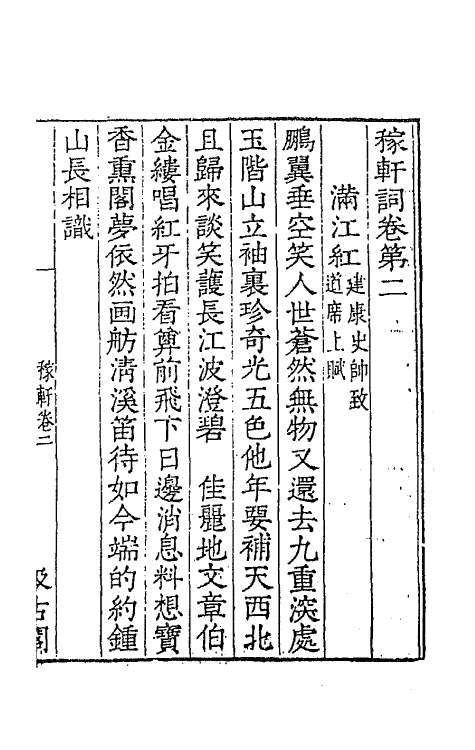 稼軒詞卷第二
滿江紅 建康史帥致
道席上賦
鵬翼垂空笑人世蒼然無物又還去九重深處
玉階山立袖裏珍奇光五色他年要補天西北
且歸來談笑護長江波澄碧 佳麗地文章伯
金縷唱紅牙拍看尊前飛下日邊消息料想寶
香熏閣夢依然画舫清溪笛待如今端的約鍾
山長相識
稼軒卷二
汲古閣